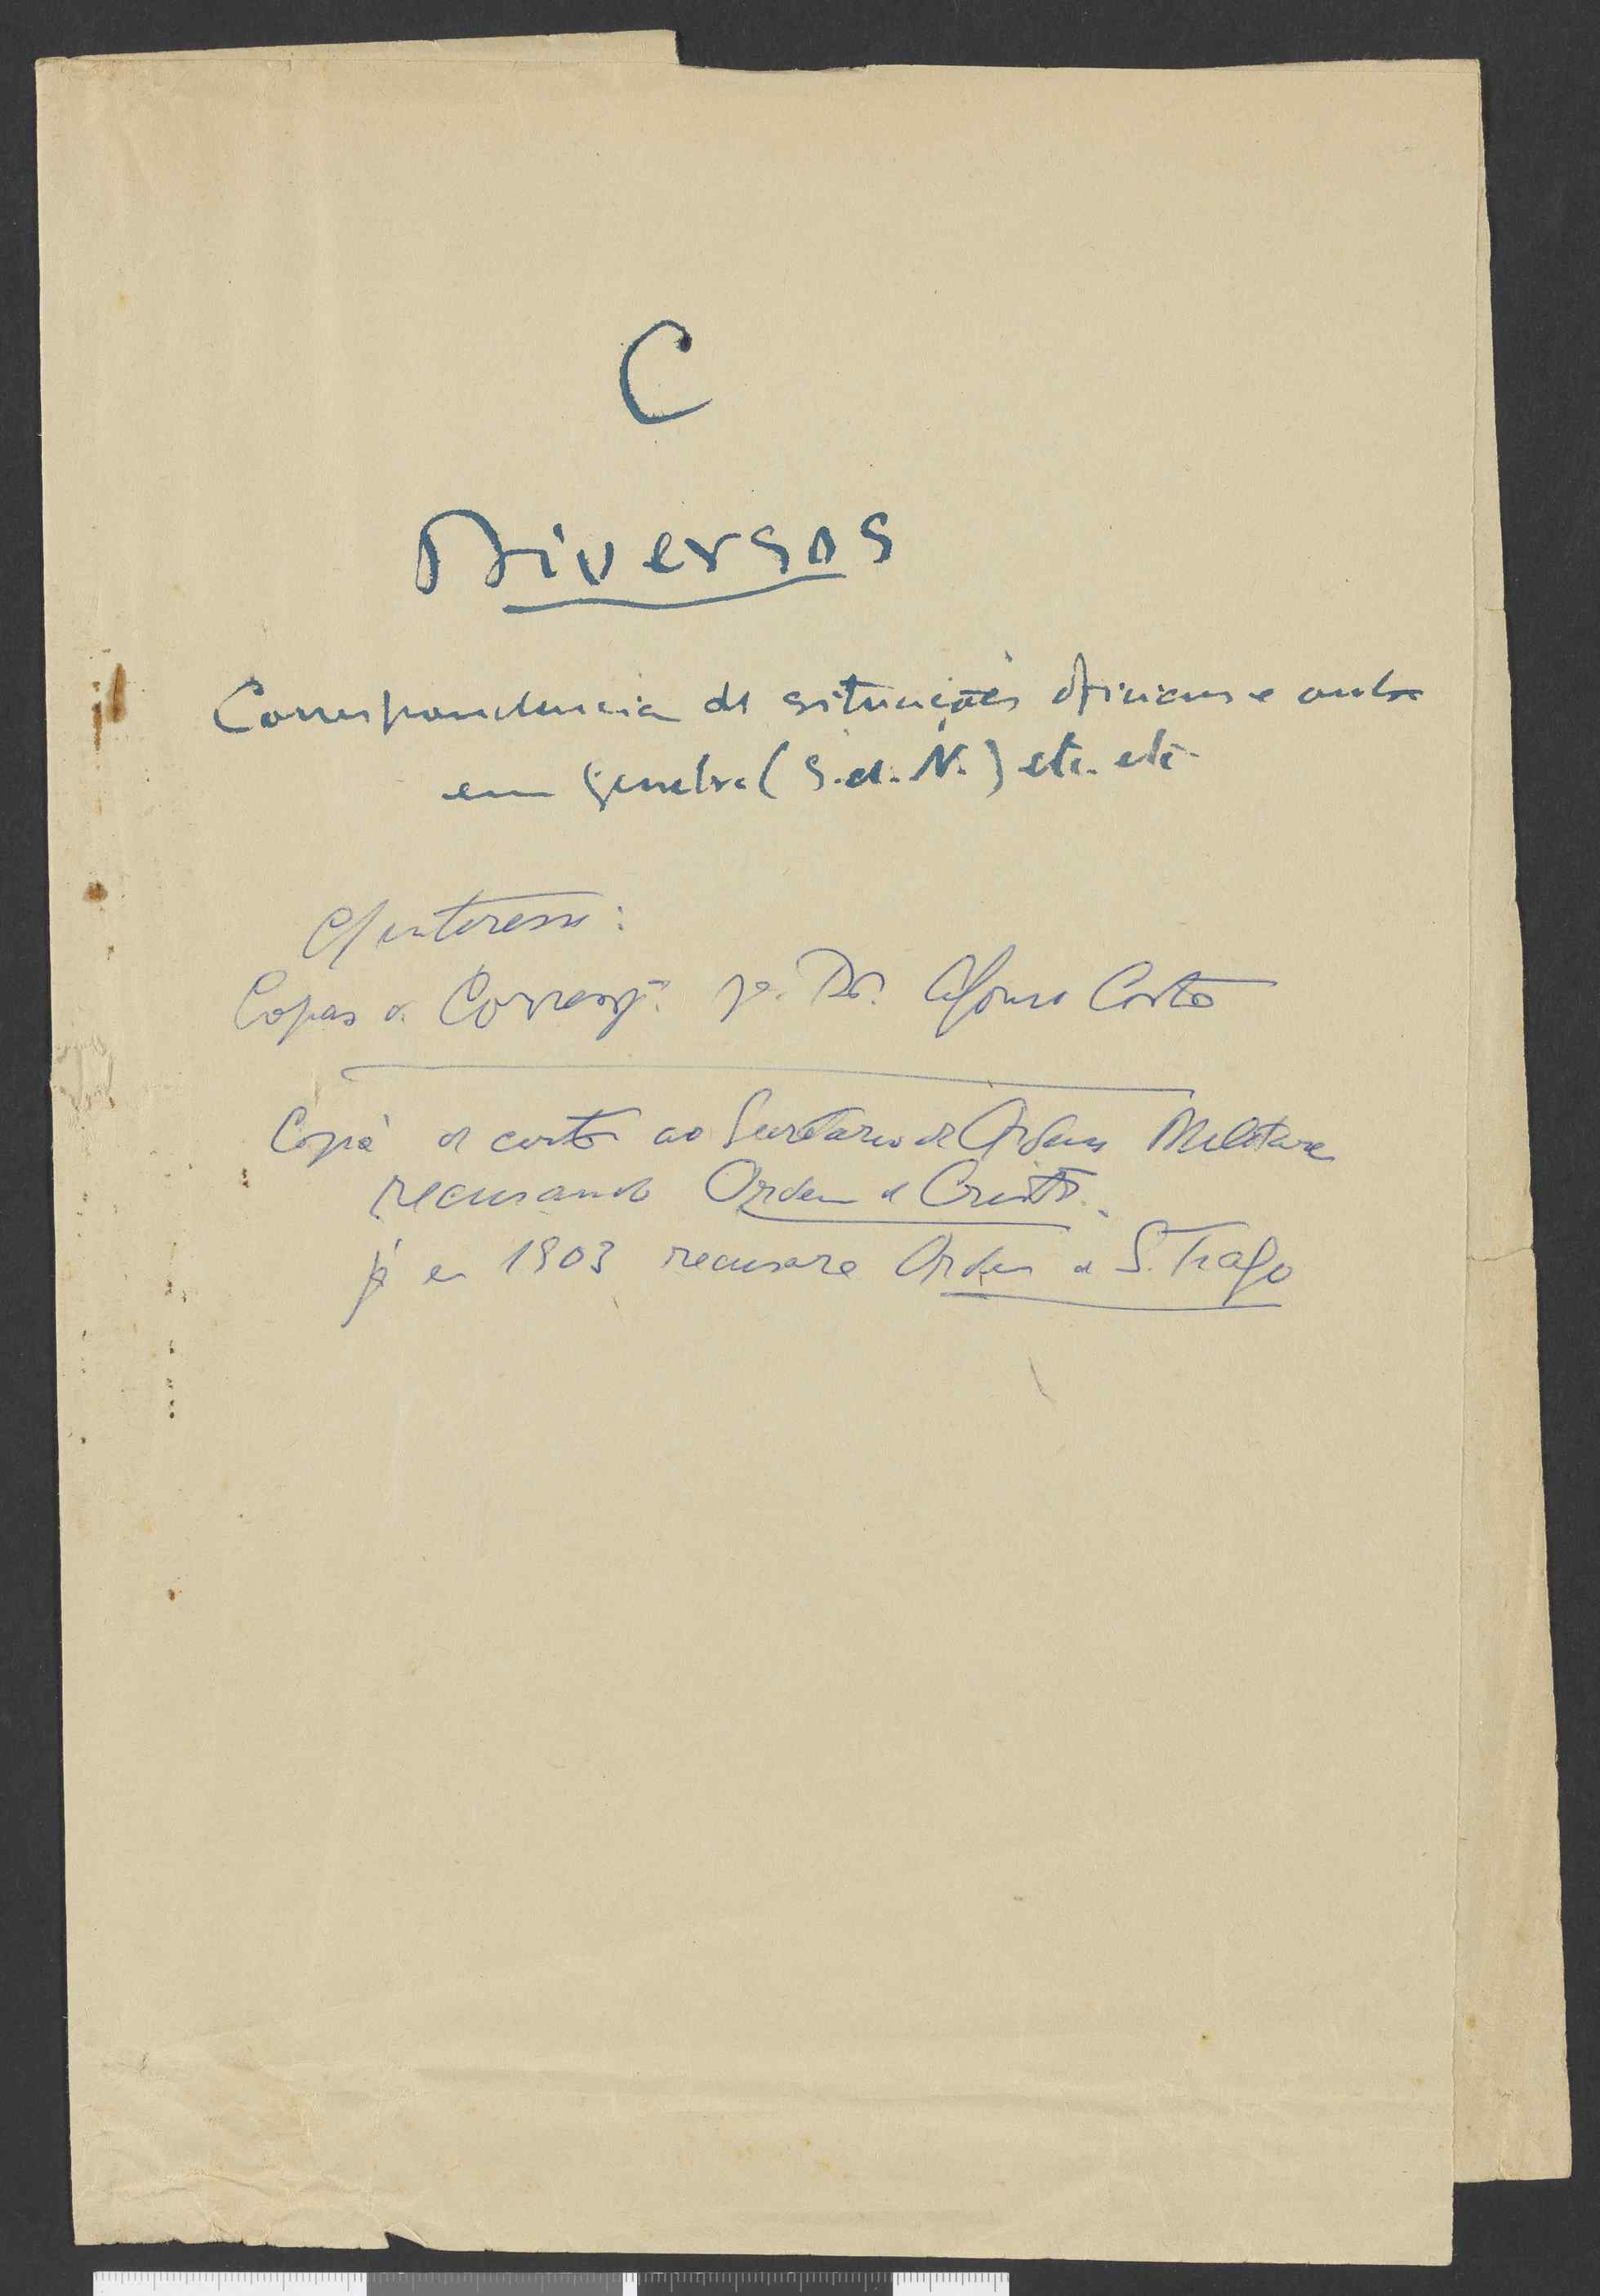 C
Diversos
Correspondencia de situações oficiaes e outra
em Genebra (S.d.N.) etc. etc.
C/ interesse:
Copias de Corresp.ª pª. Dr. Afonso Costa
Copia de carta ao Secretario de Ordens Militares
recusando Ordem de Cristo.
já em 1903 recusara Ordem de S. Tiago